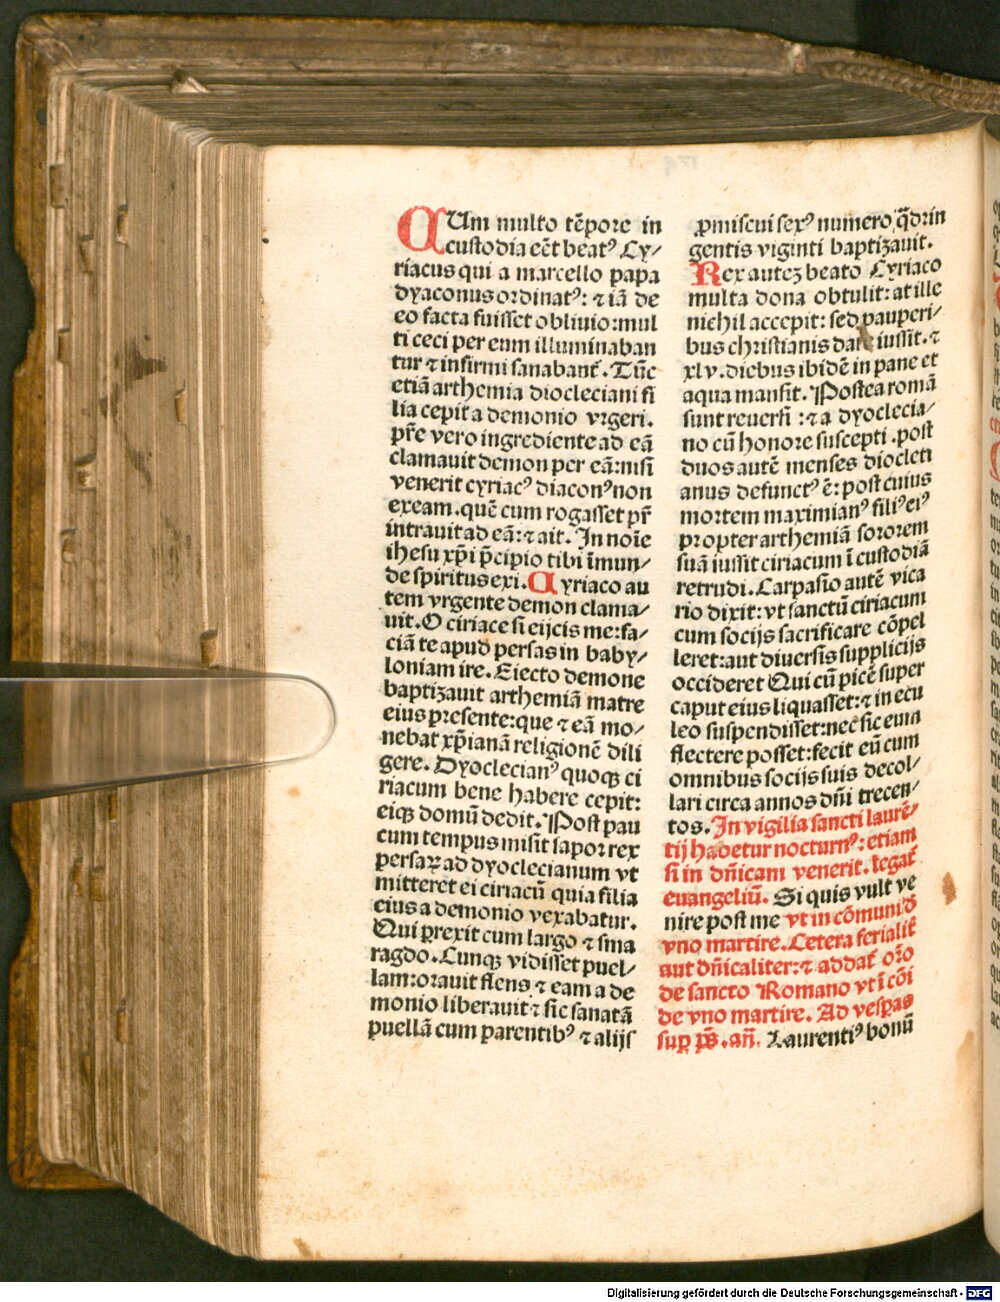 CUm multo tēpore in
custodia eēt beatꝰ Cy⸗
riacus qui a marcello papa
dyaconus ordinatꝰ: ⁊ iā de
eo facta fuisset obliuio: mul
ti ceci per eum illuminaban
tur ⁊ infirmi sanabant̄. Tūc
etiā arthemia diocleciani fi
lia cepit a demonio vrgeri.
pr̄e vero ingrediente ad eā
clamauit demon per eā: nisi
venerit cyriacꝰ diaconꝰ non
exeam. quē cum rogasset pr̄
intrauit ad eā: ⁊ ait. In noīe
ihesu xp̄i p̄cipio tibi īmun⸗
de spiritus exi. Cyriaco au
tem vrgente demon clama⸗
uit. O ciriace si eijcis me: fa⸗
ciā te apud persas in baby⸗
loniam ire. Eiecto demone
baptizauit arthemiā matre
eius presente: que ⁊ eā mo⸗
nebat xp̄ianā religionē dili
gere. Dyoclecianꝰ quoqꝫ ci
riacum bene habere cepit:
eiqꝫ domū dedit. Post pau
cum tempus misit sapor rex
persaꝝ ad dyoclecianum vt
mitteret ei ciriacū quia filia
eius a demonio vexabatur.
Qui ꝑrexit cum largo ⁊ sma
ragdo. Cunqꝫ vidisset puel⸗
lam: orauit flens ⁊ eam a de
monio liberauit ⁊ sic sanatā
puellā cum parentibꝰ ⁊ alijs
ꝓmiscui sexꝰ numero q̄drin
gentis viginti baptizauit.
Rex auteꝫ beato Cyriaco
multa dona obtulit: at ille
nichil accepit: sed pauperi⸗
bus christianis dare iussit. ⁊
xlv. diebus ibidē in pane et
aqua mansit. Postea romā
sunt reuersi: ⁊ a dyoclecia⸗
no cū honore suscepti. post
duos autē menses diocleti
anus defunctꝰ ē: post cuius
mortem maximianꝰ filiꝰ eiꝰ
propter arthemiā sororem
suā iussit ciriacum ī custodiā
retrudi. Carpasio autē vica
rio dixit: vt sanctū ciriacum
cum socijs sacrificare cōpel
leret: aut diuersis supplicijs
occideret Qui cū picē super
caput eius liquasset: ⁊ in ecu
leo suspendisset: nec sic eum
flectere posset: fecit eū cum
omnibus socijs suis decol⸗
lari circa annos dn̄i trecen⸗
tos. In vigilia sancti laurē⸗
tij habetur nocturnꝰ: etiam
si in dn̄icam venerit. legat̄
euangeliū. Si quis vult ve
nire post me vt in cōmuni d̄
vno martire. Cetera ferialit̄
aut dn̄icaliter: ⁊ addat̄ or̄o
de sancto Romano vt ī cōi
de vno martire. Ad vesꝑas
suꝑ ps̄. an̄. Laurentiꝰ bonū
Digitalisierung gefördert durch die Deutsche Forschungsgemeinschaft - DFG